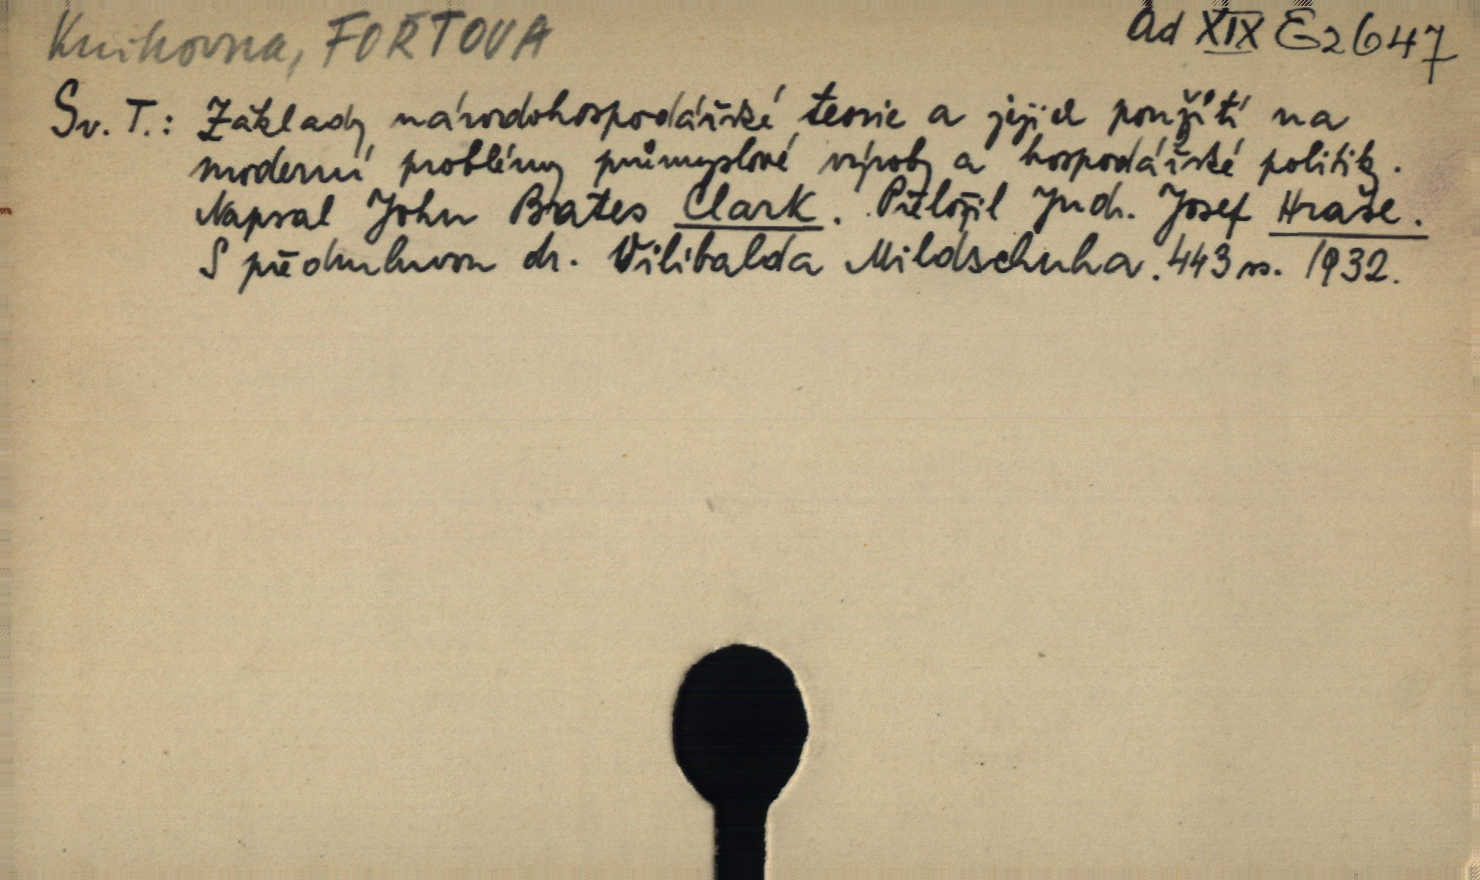 Knihovna, FOŘTOVA
Ad XIX E 2647
Sv. T.: Základy národohospodářské teorie a jejich použití na
moderní problémy průmyslové výroby a hospodářské politiky.
Napsal John Bates Clark. Přeložil Judr. Josef Hraše.
S předmluvou dr. Vilibalda Mildschuha. 443 ss. 1932.